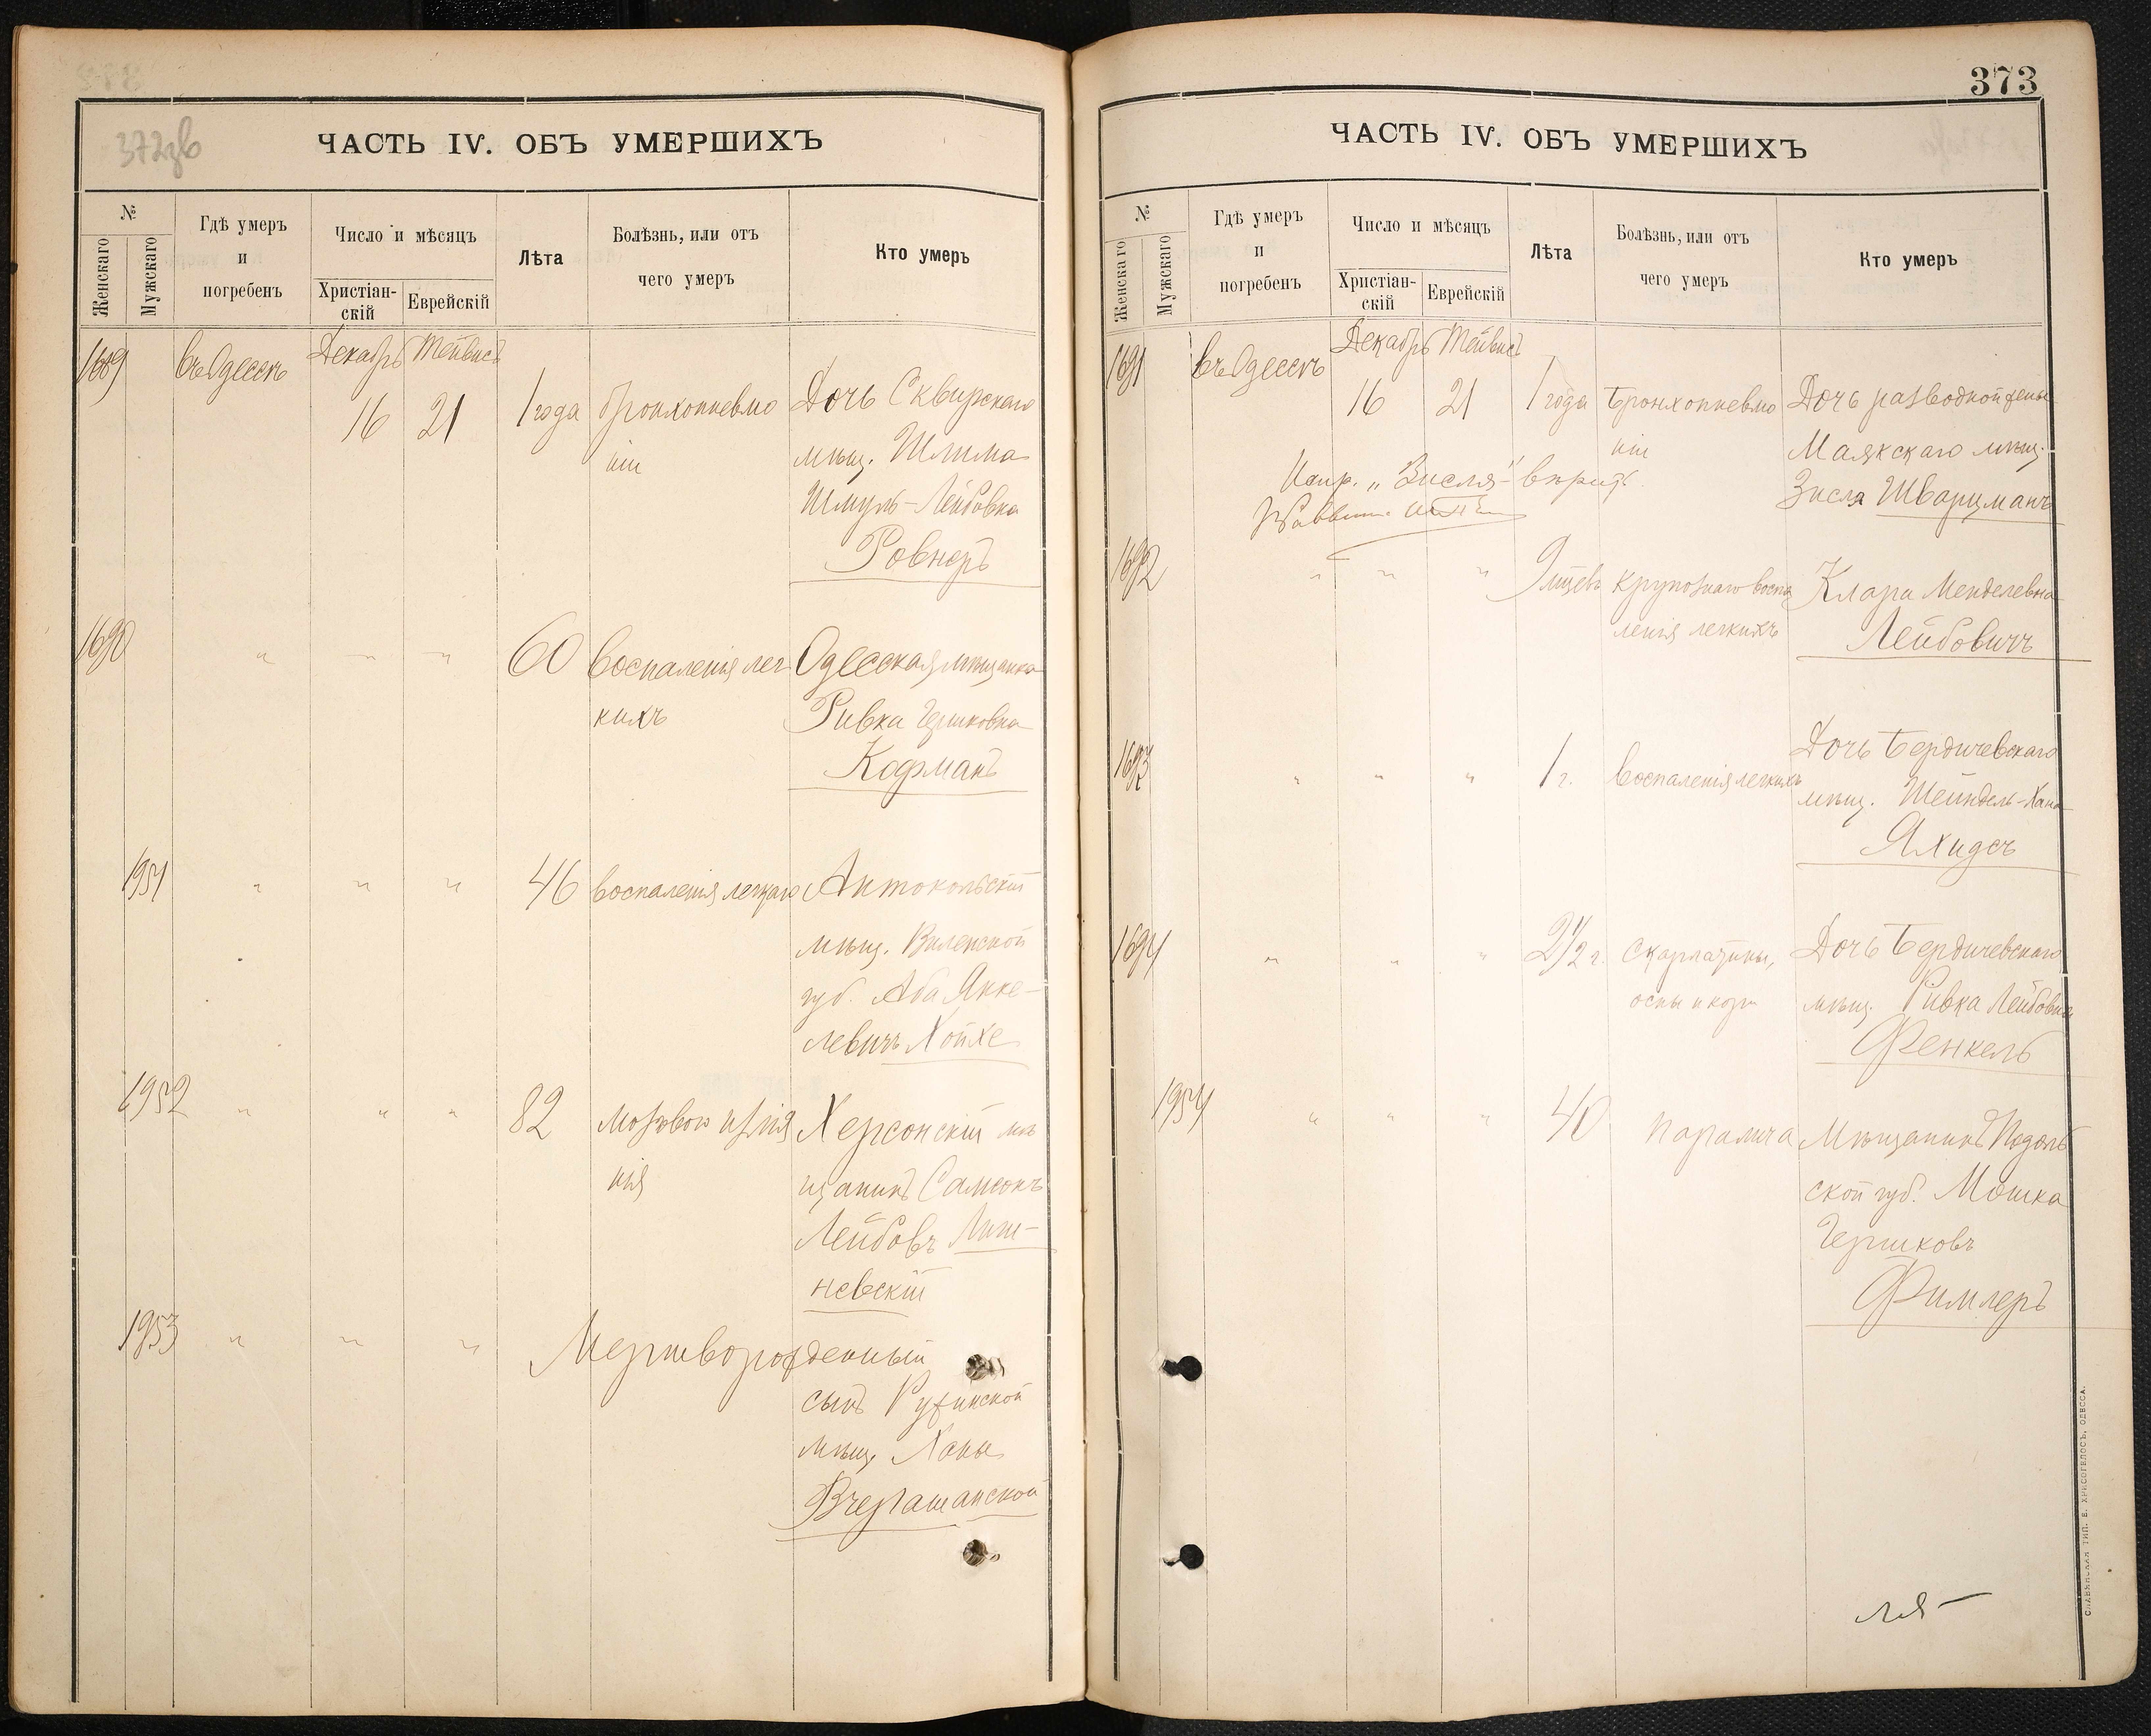 372зв
ЧАСТЬ IV. ОБЪ УМЕРШИХЪ
№
Женскаго
Мужскаго
Гдѣ умеръ
и
погребенъ
Число и мѣсяцъ
Христіан-
скій
Еврейскій
Лѣта
Болѣзнь, или отъ
чего умеръ
Кто умеръ
1689 въ Одессѣ Декабрь Тейвисъ
16 21 1 года бронхопневмо Дочь Сквирскаго
ніи мѣщ. Шлима
Шмуль-Лейбовна
Ровнеръ
1690 " " " 60 воспаленія лег Одесская мѣщанка
кихъ Ривка Гершковна
Кофманъ
1951 " " " 46 воспаленія легкаго Антокольскій
мѣщ. Виленской
губ. Аба Янке-
левичъ Хойхе
1952 " " " 82 мозговою изліянія Херсонскій мѣ
щанинъ Самсонъ
Лейбовъ
невскій
1953 " " " Мертворожденный
сынъ Ружинской
мѣщ. Ханы
Вчерашанской
373
ЧАСТЬ IV. ОБЪ УМЕРШИХЪ
№
Женскаго
Мужскаго
Гдѣ умеръ
и
погребенъ
Число и мѣсяцъ
Христіан-
скій
Еврейскій
Лѣта
Болѣзнь, или отъ
чего умеръ
Кто умеръ
1691 въ Одессѣ Декабрь Тейвисъ
16 21 1 года Бронхопневмо Дочь разводной жены
ніи Маякскаго мѣщ.
Испр. „Зисля" вѣрить. Зисля Шварцманъ
Раввинъ
1692 " " " 9 мѣсцевъ крупознаго воспа Клара Менделевна
ленія легкихъ Лейбовичъ
1693 " " " 1 г. воспаленія легкихъ Дочь Бердичевскаго
мѣщ. Шейндель-Хана
Яхидсъ
1694 " " " 2½ г. скарлатины, Дочь Бердичевскаго
оспы и кори мѣщ. Ривка Лейбовна
Френкель
1954 " " " 40 паралича Мѣщанинъ Подоль
ской губ. Мошка
Гершковъ
Фимлеръ
СЛАВЯНСКАЯ ТИП. Е. ХРИСОГЕЛОСЪ, ОДЕССА.